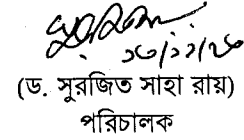 (ড. সুরজিত সাহা রায়)
পরিচালক